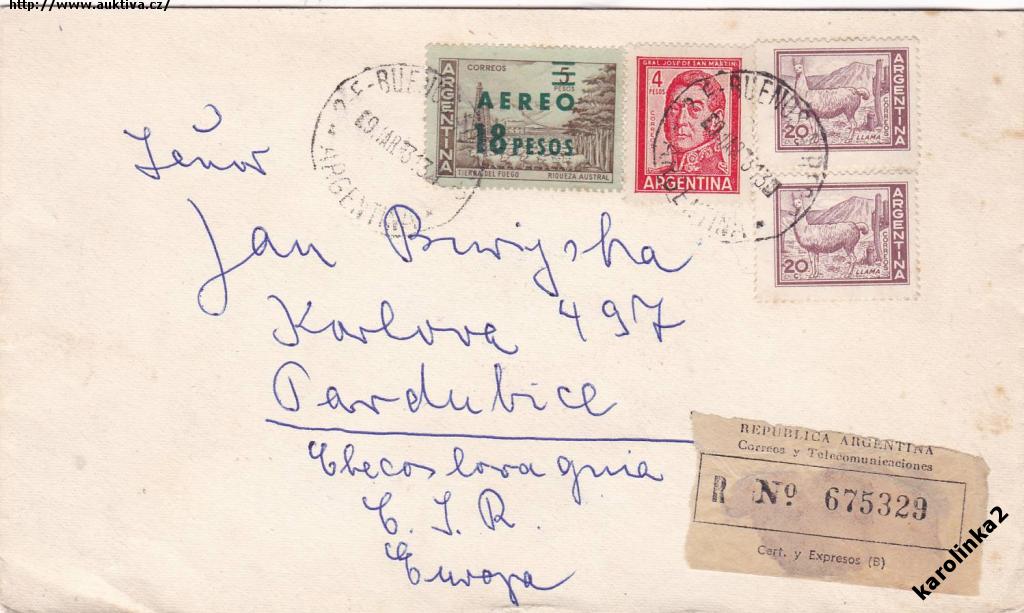 http://www.auktiva.cz/
CORREOS
5
PESOS
ARGENTINA
AEREO
18 PESOS
TIERRA DEL FUEGO RIQUEZA AUSTRAL
GRAL. JOSE DE SAN MARTIN
4
PESOS
CORREOS
ARGENTINA
20 C.
LLAMA
CORREOS
ARGENTINA
20 C.
LLAMA
CORREOS
ARGENTINA
ARGENTINA
Señor
Jan
Karlova 497
Pardubice
Checoslovaquia
Europa
REPUBLICA ARGENTINA
Correos y Telecomunicaciones
R Nº 675329
Cert. y Expresos (B)
karolinka2